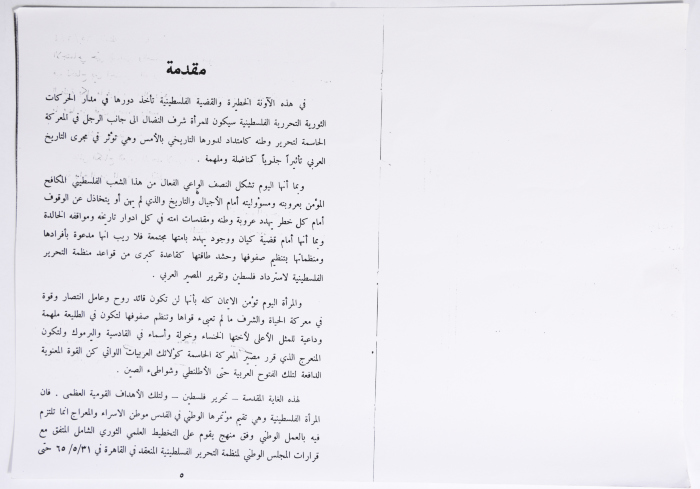 مقدمة
في هذه الآونة الخطيرة والقضية الفلسطينية تأخذ دورها في مدار الحركات
الثورية التحررية الفلسطينية سيكون للمرأة شرف النضال الى جانب الرجل في المعركة
الحاسمة لتحرير وطنه كامتداد لدورها التاريخي بالأمس وهي تؤثر في مجرى التاريخ
العربي تأثيراً جذوياً كمناضلة وملهمة .
وبما أنها اليوم تشكل النصف الواعي الفعال من هذا الشعب الفلسطيني المكافح
المؤمن بعروبته ومسؤوليته أمام الأجيال والتاريخ والذي لم يهن أو يتخاذل عن الوقوف
أمام كل خطر يهدد عروبة وطنه ومقدسات امته في كل ادوار تاريخه ومواقفه الخالدة
وبما أنها أمام قضية كيان ووجود يهدد بامتها مجتمعة فلا ريب انها مدعوة بأفرادها
ومنظماتها بتنظيم صفوفها وحشد طاقتها كقاعدة كبرى من قواعد منظمة التحرير
الفلسطينية لاسترداد فلسطين وتقرير المصير العربي .
والمرأة اليوم تؤمن الايمان كله بأنها لن تكون قائد روح وعامل انتصار وقوة
في معركة الحياة والشرف ما لم تعبىء قواها وتنظم صفوفها لتكون في الطليعة ملهمة
وداعية للمثل الأعلى لأختها الخنساء وخولة وأسماء في القادسية واليرموك ولتكون
المنعرج الذي قرر مصير المعركة الحاسمة كولائك العربيات اللواتي كن القوة المعنوية
الدافعة لتلك الفتوح العربية حتى الأطلنطي وشواطىء الصين .
لهذه الغاية المقدسة – تحرير فلسطين – ولتلك الأهداف القومية العظمى . فان
المرأة الفلسطينية وهي تقيم مؤتمرها الوطني في القدس موطن الاسراء والمعراج انما تلتزم
فيه بالعمل الوطني وفق منهج يقوم على التخطيط العلمي الثوري الشامل المتفق مع
قرارات المجلس الوطني لمنظمة التحرير الفلسطينية المنعقد في القاهرة في ٦٥/٥/٣١ حتى
٥